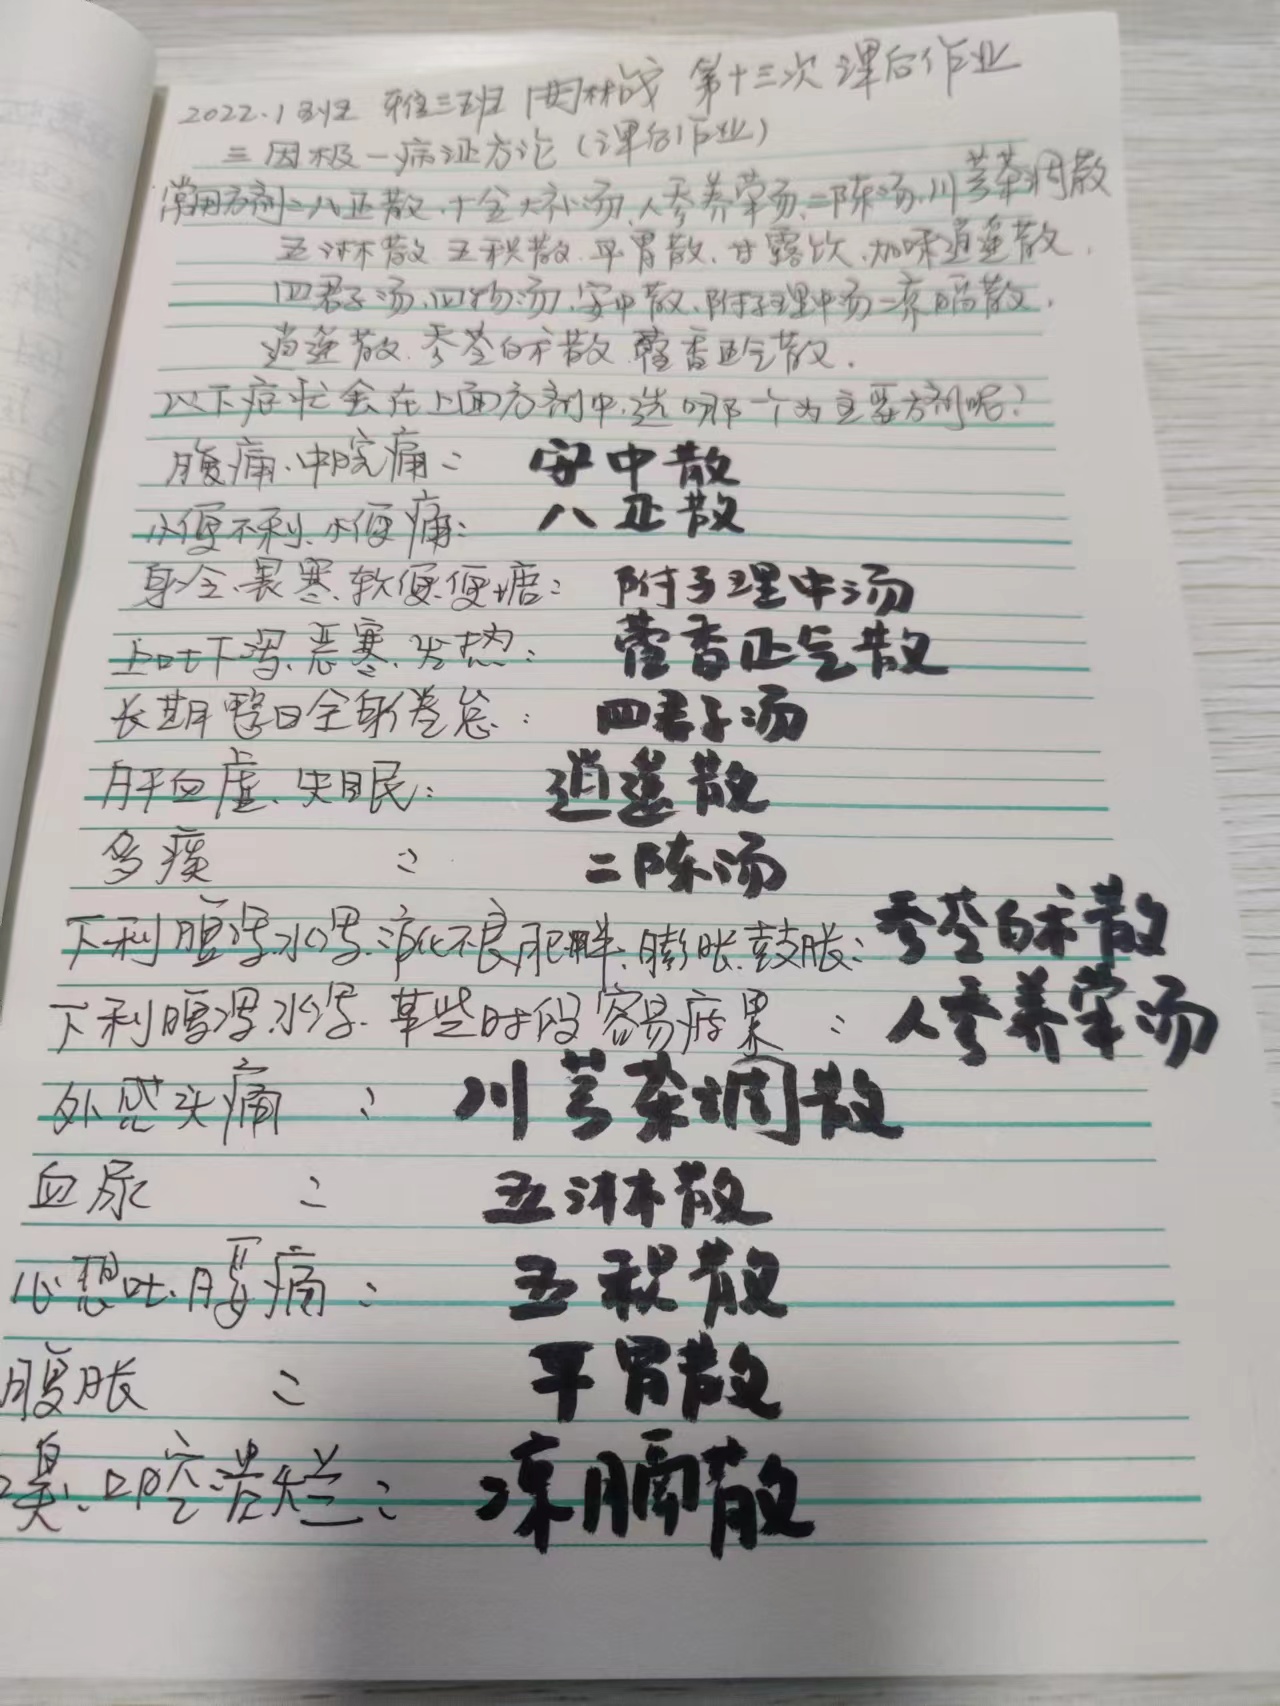 2022.1 班 雅三班 周林战 第十三次 课后作业
三因极一病证方论(课后作业)
常用方剂:八正散、十全大补汤、人参养荣汤、二陈汤、川芎茶调散
五淋散、五积散、平胃散、甘露饮、加味逍遥散、
四君子汤、四物汤、安中散、附子理中汤、凉膈散、
逍遥散、参苓白术散、藿香正气散。
以下症状会在上面方剂中,选哪一个为主要方剂呢?
腹痛、中脘痛: 安中散
小便不利、小便痛: 八正散
身冷、畏寒、软便、便溏: 附子理中汤
上吐下泻、恶寒、发热: 藿香正气散
长期整日全身倦怠: 四君子汤
肝血虚、失眠: 逍遥散
多痰 : 二陈汤
下利腹泻、水泻、消化不良、肥胖、膨胀、鼓胀: 参苓白术散
下利腹泻、水泻、某些时段容易疲累 : 人参养荣汤
外感头痛 : 川芎茶调散
血尿 : 五淋散
心想吐、腰痛: 五积散
腹胀 : 平胃散
口臭、口腔溃烂: 凉膈散